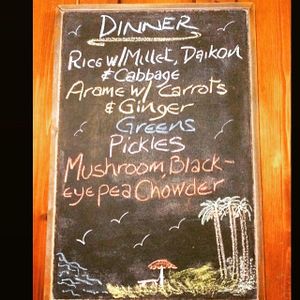 DINNER
Rice w/Millet, Daikon
& Cabbage
Arame w/ Carrots
& Ginger
Greens
Pickles
Mushroom Black-
eye pea Chowder